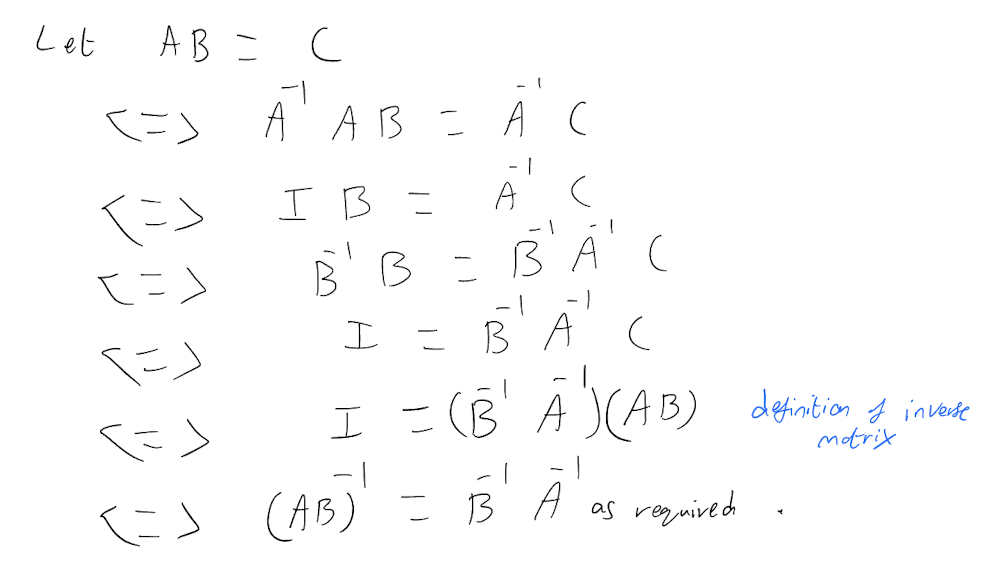 Let AB = C
<=> A⁻¹ A B = A⁻¹ C
<=> I B = A⁻¹ C
<=> B⁻¹ B = B⁻¹ A⁻¹ C
<=> I = B⁻¹ A⁻¹ C
<=> I = (B⁻¹ A⁻¹)(AB) definition of inverse
matrix
<=> (AB)⁻¹ = B⁻¹ A⁻¹ as required .